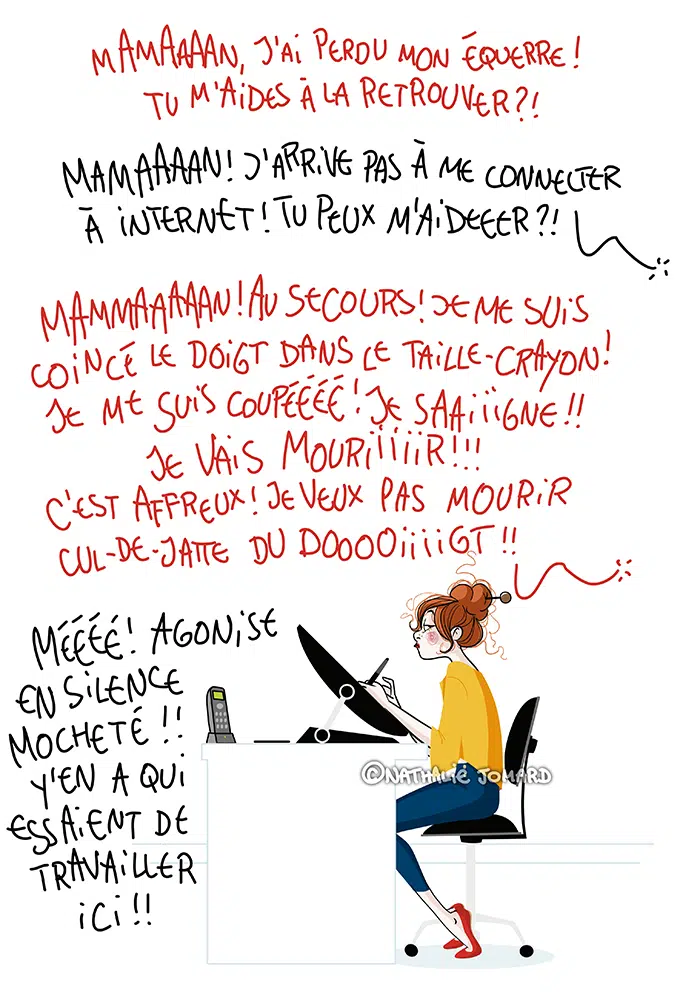 MAMAAAAN, J'AI PERDU MON ÉQUERRE !
TU M'AIDES À LA RETROUVER ?!
MAMAAAAN ! J'ARRIVE PAS À ME CONNECTER
À INTERNET ! TU PEUX M'AIDEEER ?!
MAMMAAAAAN ! AU SECOURS ! JE ME SUIS
COINCÉ LE DOIGT DANS LE TAILLE-CRAYON !
JE ME SUIS COUPÉÉÉÉÉ ! JE SAAIÏÏGNE !!
JE VAIS MOURIIIIIR !!!
C'EST AFFREUX ! JE VEUX PAS MOURIR
CUL-DE-JATTE DU DOOOOIIIIGT !!
MÉÉÉÉ ! AGONISE
EN SILENCE
MOCHETÉ !!
Y'EN A QUI
ESSAIENT DE
TRAVAILLER
ICI !!
©NATHALIE JOMARD